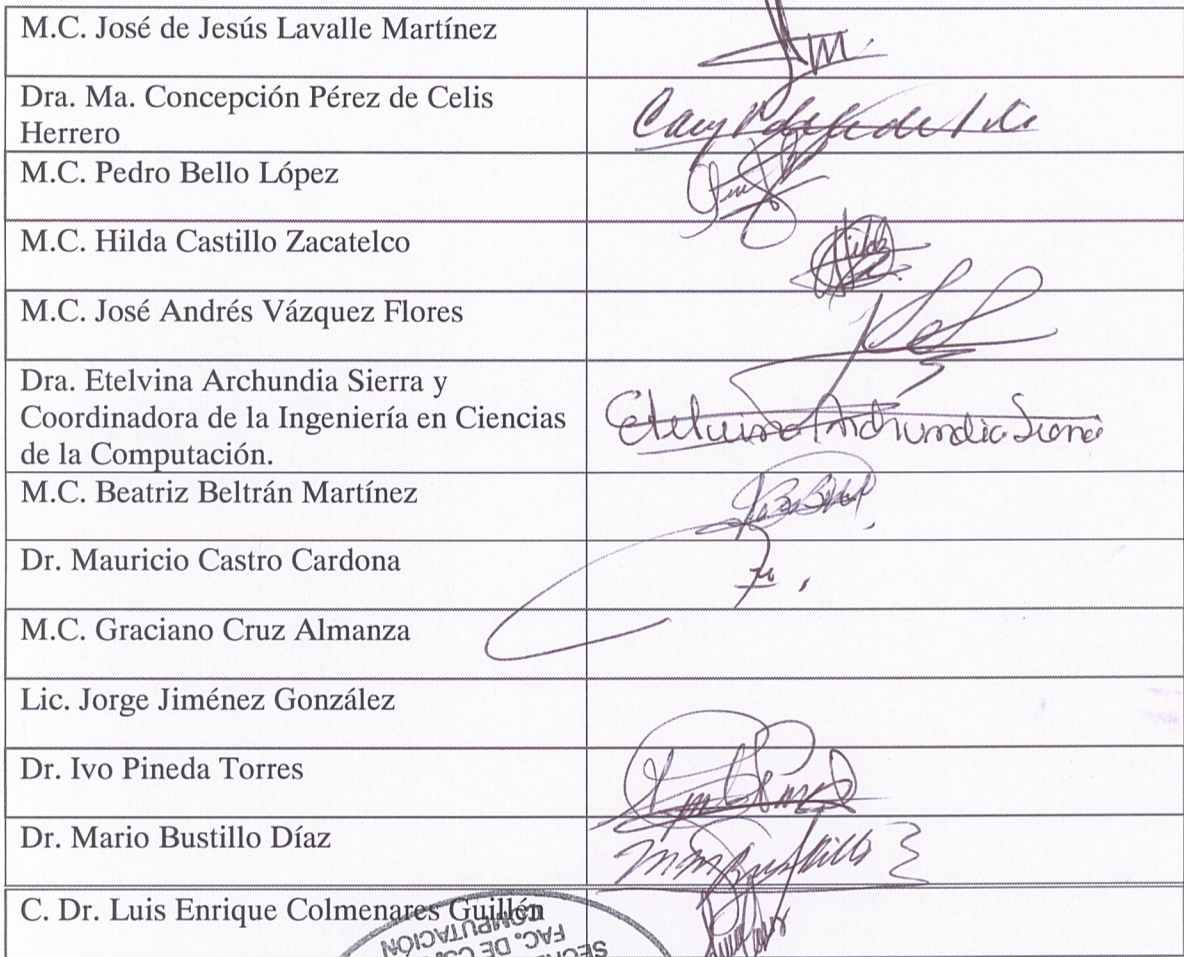 M.C. José de Jesús Lavalle Martínez
Dra. Ma. Concepción Pérez de Celis
Herrero
M.C. Pedro Bello López
M.C. Hilda Castillo Zacatelco
M.C. José Andrés Vázquez Flores
Dra. Etelvina Archundia Sierra y
Coordinadora de la Ingeniería en Ciencias
de la Computación.
Etelvina Archundia Sierra
M.C. Beatriz Beltrán Martínez
Dr. Mauricio Castro Cardona
M.C. Graciano Cruz Almanza
Lic. Jorge Jiménez González
Dr. Ivo Pineda Torres
Dr. Mario Bustillo Díaz
C. Dr. Luis Enrique Colmenares Guillén
COMPUTACIÓN
FAC. DE